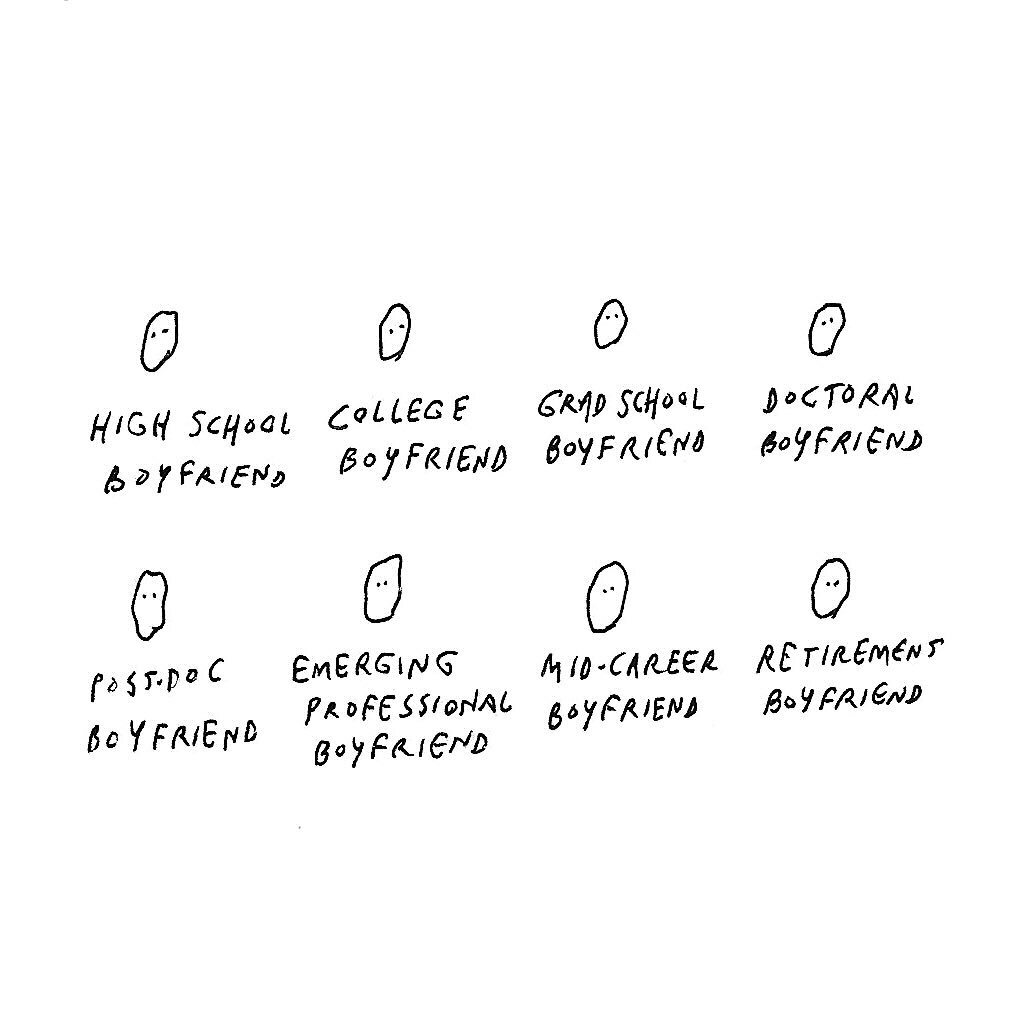 HIGH SCHOOL
BOYFRIEND
COLLEGE
BOYFRIEND
GRAD SCHOOL
BOYFRIEND
DOCTORAL
BOYFRIEND
POST-DOC
BOYFRIEND
EMERGING
PROFESSIONAL
BOYFRIEND
MID-CAREER
BOYFRIEND
RETIREMENT
BOYFRIEND